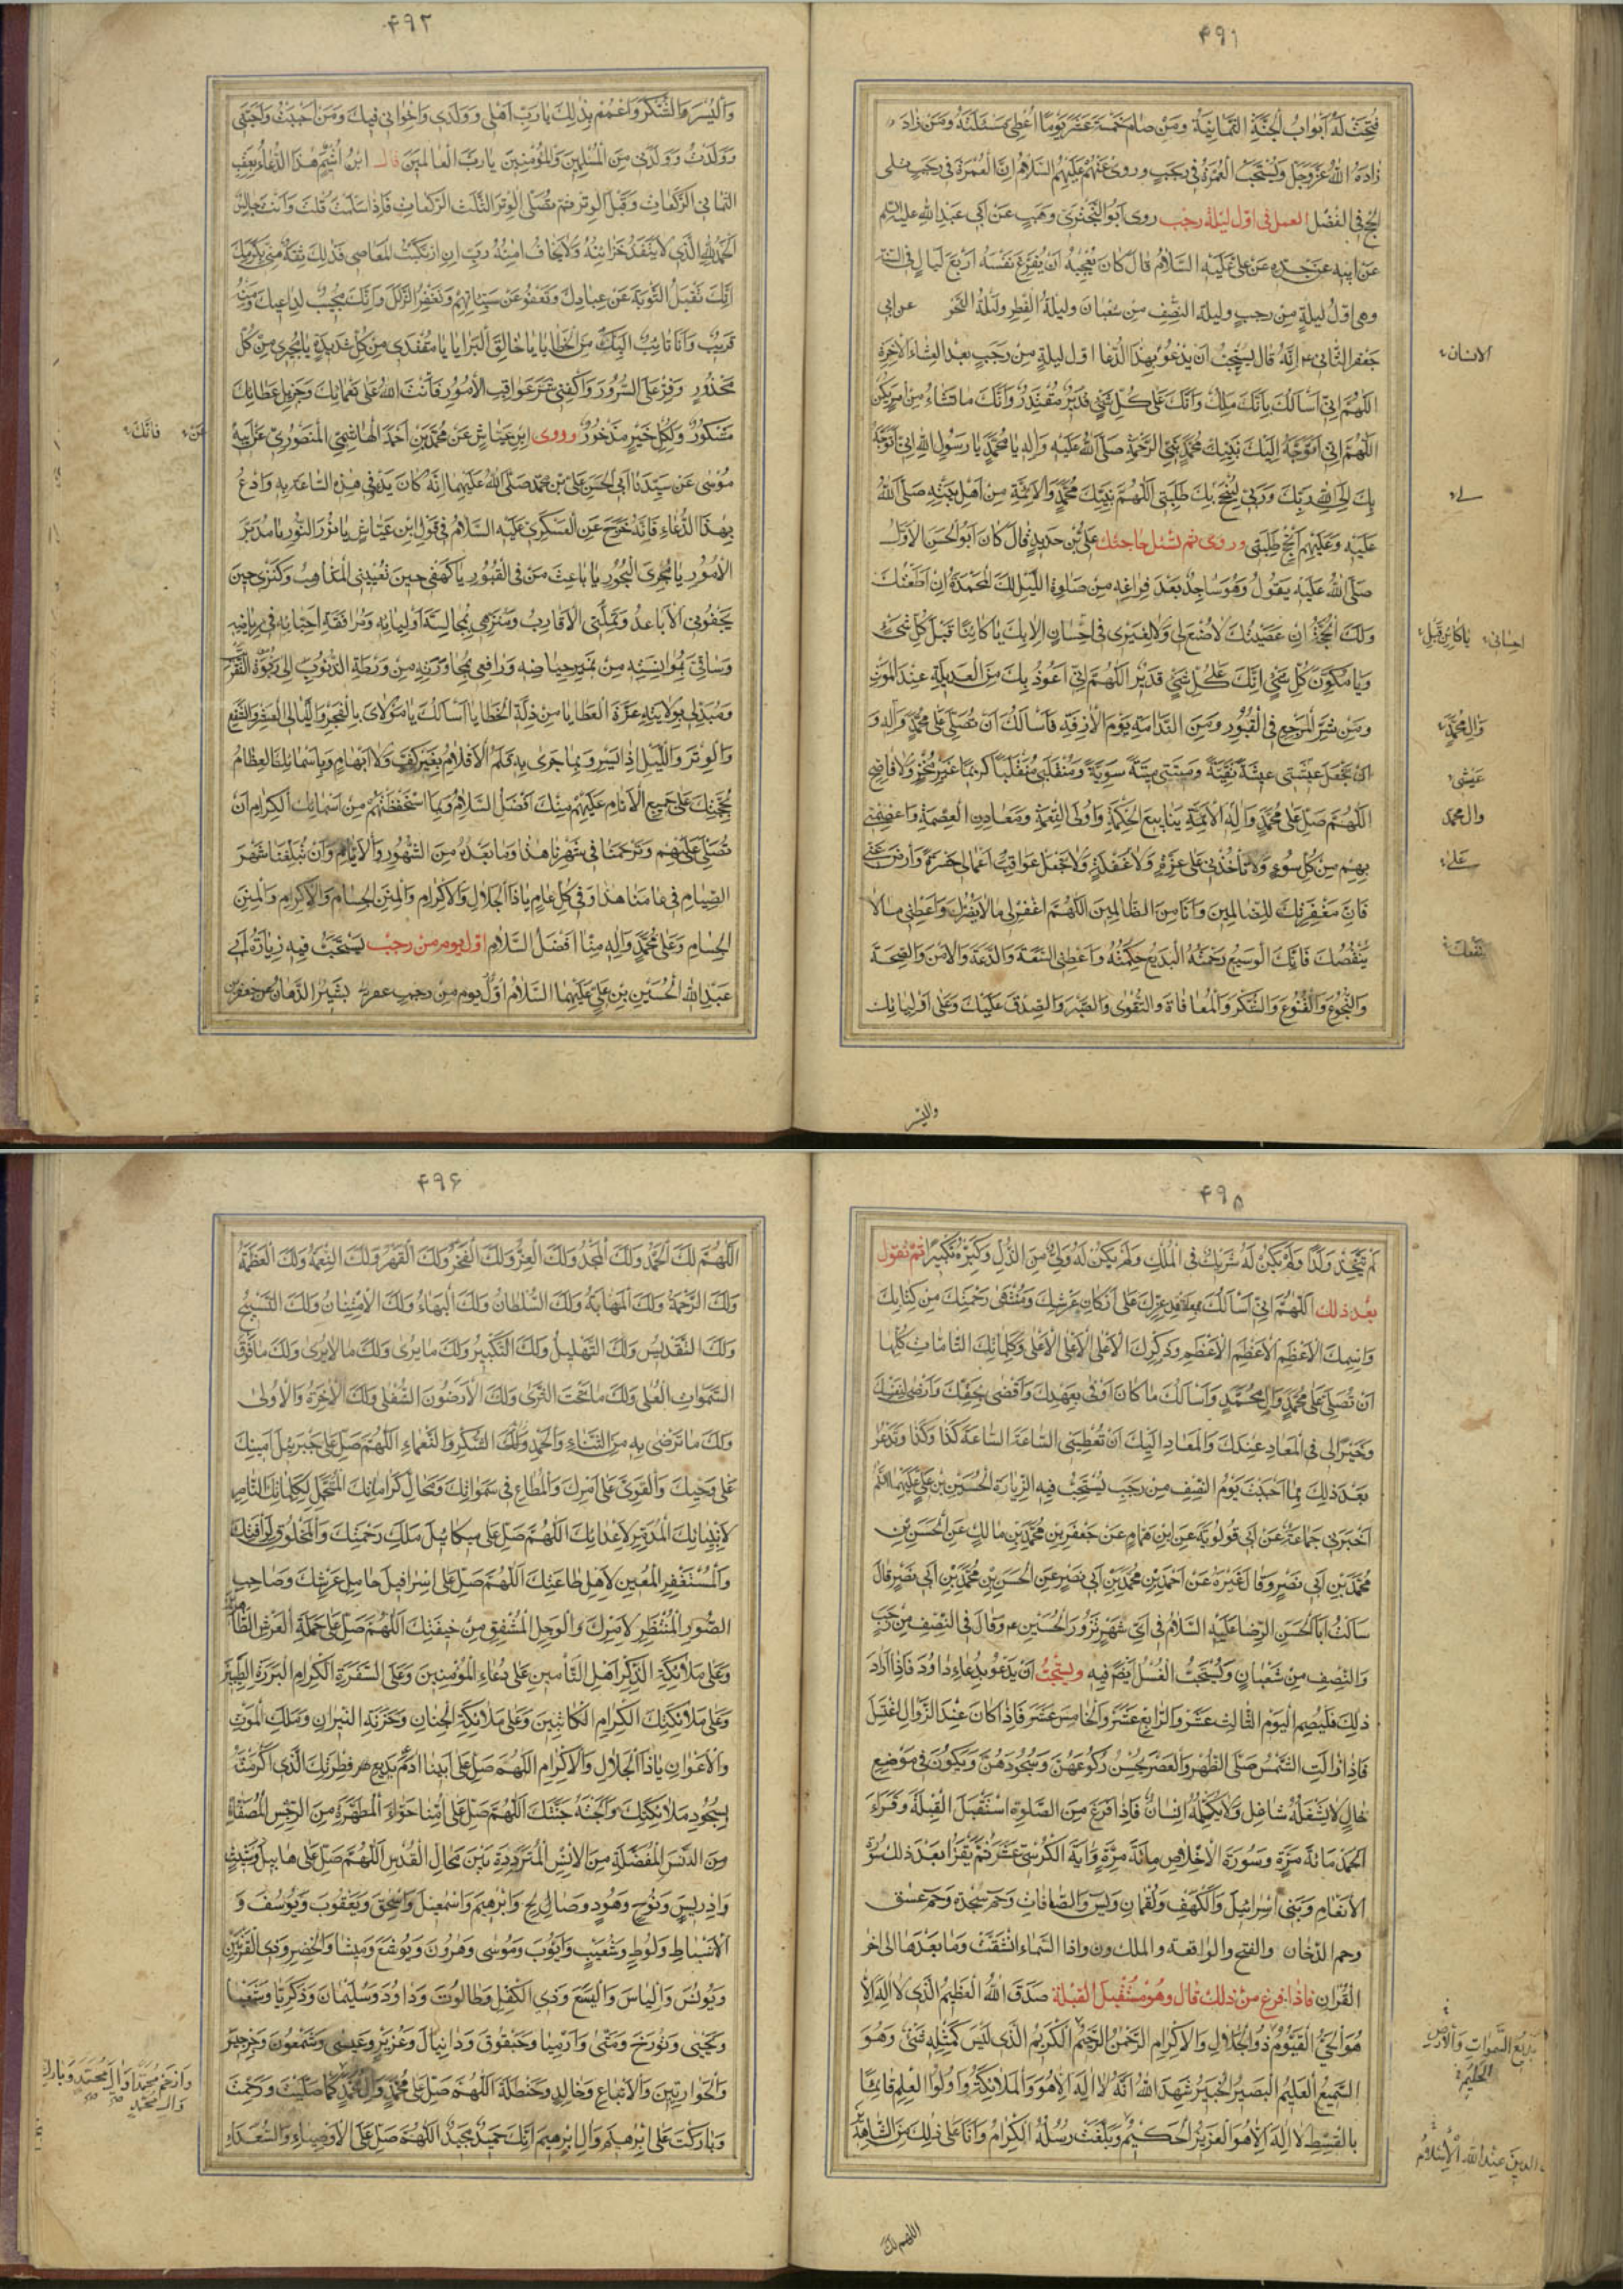 ۴۹۱
فتحت له ابواب الجنة الثمانية ومن صام خمسة عشر يوما اعطي مسئلته ومن زاد
زاده الله عز وجل ويستحب العمرة في رجب وروي عنهم عليهم السلام ان العمرة في رجب تلي
الحج في الفضل العمل في اول ليلة رجب روى ابو البختري وهب عن ابي عبد الله عليه السلم
عن ابيه عن جده عن علي عليه السلام قال كان يعجبه ان يفرغ نفسه اربع ليال في السنة
وهي اول ليلة من رجب وليلة النصف من شعبان وليلة الفطر وليلة النحر عن ابي
جعفر الثاني ع انه قال يستحب ان يدعو بهذا الدعا اول ليلة من رجب بعد العشاء الاخرة
اللهم اني اسالك بانك ملك وانك على كل شيء قدير مقتدر وانك ما تشاء من امر يكن
اللهم اني اتوجه اليك بنبيك محمد نبي الرحمة صلى الله عليه واله يا محمد يا رسول الله اني اتوجه
بك الى الله ربك وربي لينجح بك طلبتي اللهم بنبيك محمد والائمة من اهل بيته صلى الله
عليه وعليهم انجح طلبتي وروى ثم تسئل حاجتك علي بن حديد قال كان ابو الحسن الاول
صلى الله عليه يقول وهو ساجد بعد فراغه من صلوة الليل لك المحمدة ان اطعتك
ولك الحجة ان عصيتك لا صنع لي ولا لغيري في احسان الا بك يا كائنا قبل كل شيء
ويا مكون كل شيء انك على كل شيء قدير اللهم اني اعوذ بك من العديلة عند الموت
ومن شر المرجع في القبور ومن الندامة يوم الازفة فاسالك ان تصلي على محمد واله و
ان تجعل عيشتي عيشة نقية وميتتي ميتة سوية ومنقلبي منقلبا كريما غير مخز ولا فاضح
اللهم صل على محمد واله الائمة ينابيع الحكمة واولي النعمة ومعادن العصمة واعصمني
بهم من كل سوء ولا تاخذني على غرة ولا غفلة ولا تجعل عواقب اعمالي حسرة وارض عني
فان مغفرتك للظالمين وانا من الظالمين اللهم اغفر لي ما لا يضرك واعطني ما لا
ينقصك فانك الوسيع رحمته البديع حكمته واعطني السعة والدعة والامن والصحة
والنجوع والقنوع والشكر والمعافاة والتقوى والصبر والصدق عليك وعلى اوليائك
الانسان
احساني
يا كائن قبل
وال محمد
عيشي
وال محمد
على
واليسر
۴۹۲
واليسر والشكر واعمم بذلك يا رب اهلي وولدي واخواني فيك ومن احببت واحبني
وولدت وولدني من المسلمين والمؤمنين يا رب العالمين قال ابن اشيم هذا الدعاء يعقب
الثماني الركعات وقبل الوتر ثم تصلي الوتر الثلث الركعات فاذا سلمت قلت وانت جالس
الحمد لله الذي لا ينفد خزائنه ولا يخاف امنه رب ان ارتكبت المعاصي فذلك ثقة مني بكرمك
انك تقبل التوبة عن عبادك وتعفو عن سيئاتهم وتغفر الزلل وانك مجيب لداعيك ومنه
قريب وانا تائب اليك من الخطايا يا خالق البرايا يا منقذي من كل شديدة يا مجيري من كل
محذور وفر علي السرور واكفني شر عواقب الامور فانت الله على نعمائك وجزيل عطائك
مشكور ولكل خير مذخور وروى ابن عياش عن محمد بن احمد الهاشمي المنصوري عن ابيه
موسى عن سيدنا ابي الحسن علي بن محمد صلى الله عليهما انه كان يدعو في هذه الساعة به وادع
بهذا الدعاء فانه خرج عن العسكري عليه السلام في قول ابن عياش يا نور النور يا مدبر
الامور يا مجري البحور يا باعث من في القبور يا كهفي حين تعييني المذاهب وكنزي حين
يجفوني الاباعد وتملني الاقارب ومنزهي بمجالسة اوليائه ومرافقة احبائه في رياضه
وساقي بموانسته من نمير حياضه ورافعي بمجاورته من ورطة الذنوب الى ربوة التقرب
ومبدلي بولايته عزة العطايا من ذلة الخطايا اسالك يا مولاي بالفجر والليالي العشر والشفع
والوتر والليل اذا يسر وبما جرى به قلم الاقلام بغير كف ولا ابهام وباسمائك العظام
بحججك على جميع الانام عليهم منك افضل السلام وبما استحفظتهم من اسمائك الكرام ان
تصلي عليهم وترحمنا في شهرنا هذا وما بعده من الشهور والايام وان تبلغنا شهر
الصيام في عامنا هذا وفي كل عام يا ذا الجلال والاكرام والمنن الجسام والاكرام والمنن
الجسام وعلى محمد واله منا افضل السلام اول يوم من رجب يستحب فيه زيارة ابي
عبد الله الحسين بن علي عليهما السلام اول يوم من رجب بشير الدهان عن جعفر بن
فانك
۴۹۵
لم يتخذ ولدا ولم يكن له شريك في الملك ولم يكن له ولي من الذل وكبره تكبيرا ثم تقول
بعد ذلك اللهم اني اسالك بمعاقد عزك على اركان عرشك ومنتهى رحمتك من كتابك
واسمك الاعظم الاعظم الاعظم وذكرك الاعلى الاعلى الاعلى وكلماتك التامات كلها
ان تصلي على محمد وال محمد واسالك ما كان اوفى بعهدك واقضى لحقك وارضى لنفسك
وخيرا لي في المعاد عندك والمعاد اليك ان تعطيني الساعة الساعة كذا وكذا وتدعو
بعد ذلك بما احببت يوم النصف من رجب يستحب فيه الزيارة الحسين بن علي عليهما السلم
اخبرني جماعة عن ابي قولويه عن ابن همام عن جعفر بن محمد بن مالك عن الحسن بن
محمد بن ابي نصر وقال غيره عن احمد بن محمد بن ابي نصر عن الحسن بن محمد بن ابي نصر قال
سالت ابا الحسن الرضا عليه السلام في اي شهر نزور الحسين ع وقال في النصف من رجب
والنصف من شعبان ويستحب الغسل ايضا فيه ويستحب ان يدعو بدعاء داود فاذا اراد
ذلك فليصم اليوم الثالث عشر والرابع عشر والخامس عشر فاذا كان عند الزوال اغتسل
فاذا زالت الشمس صلى الظهر والعصر يحسن ركوعهن وسجودهن ويكون في موضع
خال لا يشغله شاغل ولا يكلمه انسان فاذا فرغ من الصلوة استقبل القبلة وقراء
الحمد مائة مرة وسورة الاخلاص مائة مرة واية الكرسي عشر ثم يقرا بعد ذلك سورة
الانعام وبني اسرائيل والكهف ولقمان ويس والصافات وحم سجدة وحم عسق
وحم الدخان والفتح والواقعة والملك ون واذا السماء انشقت وما بعدها الى اخر
القران فاذا فرغ من ذلك قال وهو مستقبل القبلة صدق الله العظيم الذي لا اله الا
هو الحي القيوم ذو الجلال والاكرام الرحمن الرحيم الكريم الذي ليس كمثله شيء وهو
السميع العليم البصير الخبير شهد الله انه لا اله الا هو والملائكة واولوا العلم قائما
بالقسط لا اله الا هو العزيز الحكيم وبلغت رسله الكرام وانا على ذلك من الشاهدين
بديع السموات والارض
الحليم
الدين عند الله الاسلام
اللهم لك
۴۹۶
اللهم لك الحمد ولك المجد ولك العز ولك الفخر ولك القهر ولك النعمة ولك العظمة
ولك الرحمة ولك المهابة ولك السلطان ولك البهاء ولك الامتنان ولك التسبيح
ولك التقديس ولك التهليل ولك التكبير ولك ما يرى ولك ما لا يرى ولك ما فوق
السموات العلى ولك ما تحت الثرى ولك الارضون السفلى ولك الاخرة والاولى
ولك ما ترضى به من الثناء والحمد ولك الشكر والنعماء اللهم صل على جبريل امينك
على وحيك والقوي على امرك والمطاع في سمواتك ومحال كراماتك المتحمل لكلماتك الناصر
لانبيائك المدمر لاعدائك اللهم صل على ميكائيل ملك رحمتك والمخلوق لرافتك
والمستغفر المعين لاهل طاعتك اللهم صل على اسرافيل حامل عرشك وصاحب
الصور المنتظر لامرك والوجل المشفق من خيفتك اللهم صل على حملة العرش الطاهرين
وعلى ملائكة الذكر اهل التامين على دعاء المؤمنين وعلى السفرة الكرام البررة الطيبين
وعلى ملائكتك الكرام الكاتبين وعلى ملائكة الجنان وخزنة النيران وملك الموت
والاعوان يا ذا الجلال والاكرام اللهم صل على ابينا ادم بديع فطرتك الذي اكرمته
بسجود ملائكتك وابحته جنتك اللهم صل على امنا حواء المطهرة من الرجس المصفاة
من الدنس المفضلة من الانس المترددة بين محال القدس اللهم صل على هابيل وشيث
وادريس ونوح وهود وصالح وابرهيم واسمعيل واسحق ويعقوب ويوسف و
الاسباط ولوط وشعيب وايوب وموسى وهرون ويوشع وميشا والخضر وذي القرنين
ويونس والياس واليسع وذي الكفل وطالوت وداود وسليمان وذكريا وشعيا
ويحيى وتورخ ومتى وارميا وحيقوق ودانيال وعزير وعيسى وشمعون وجرجيس
والحواريين والاتباع وخالد وحنظلة اللهم صل على محمد وال محمد كما صليت ورحمت
وباركت على ابرهيم وال ابرهيم انك حميد مجيد اللهم صل على الاوصياء والسعداء
وارحم محمدا وال محمد وبارك
وال محمد